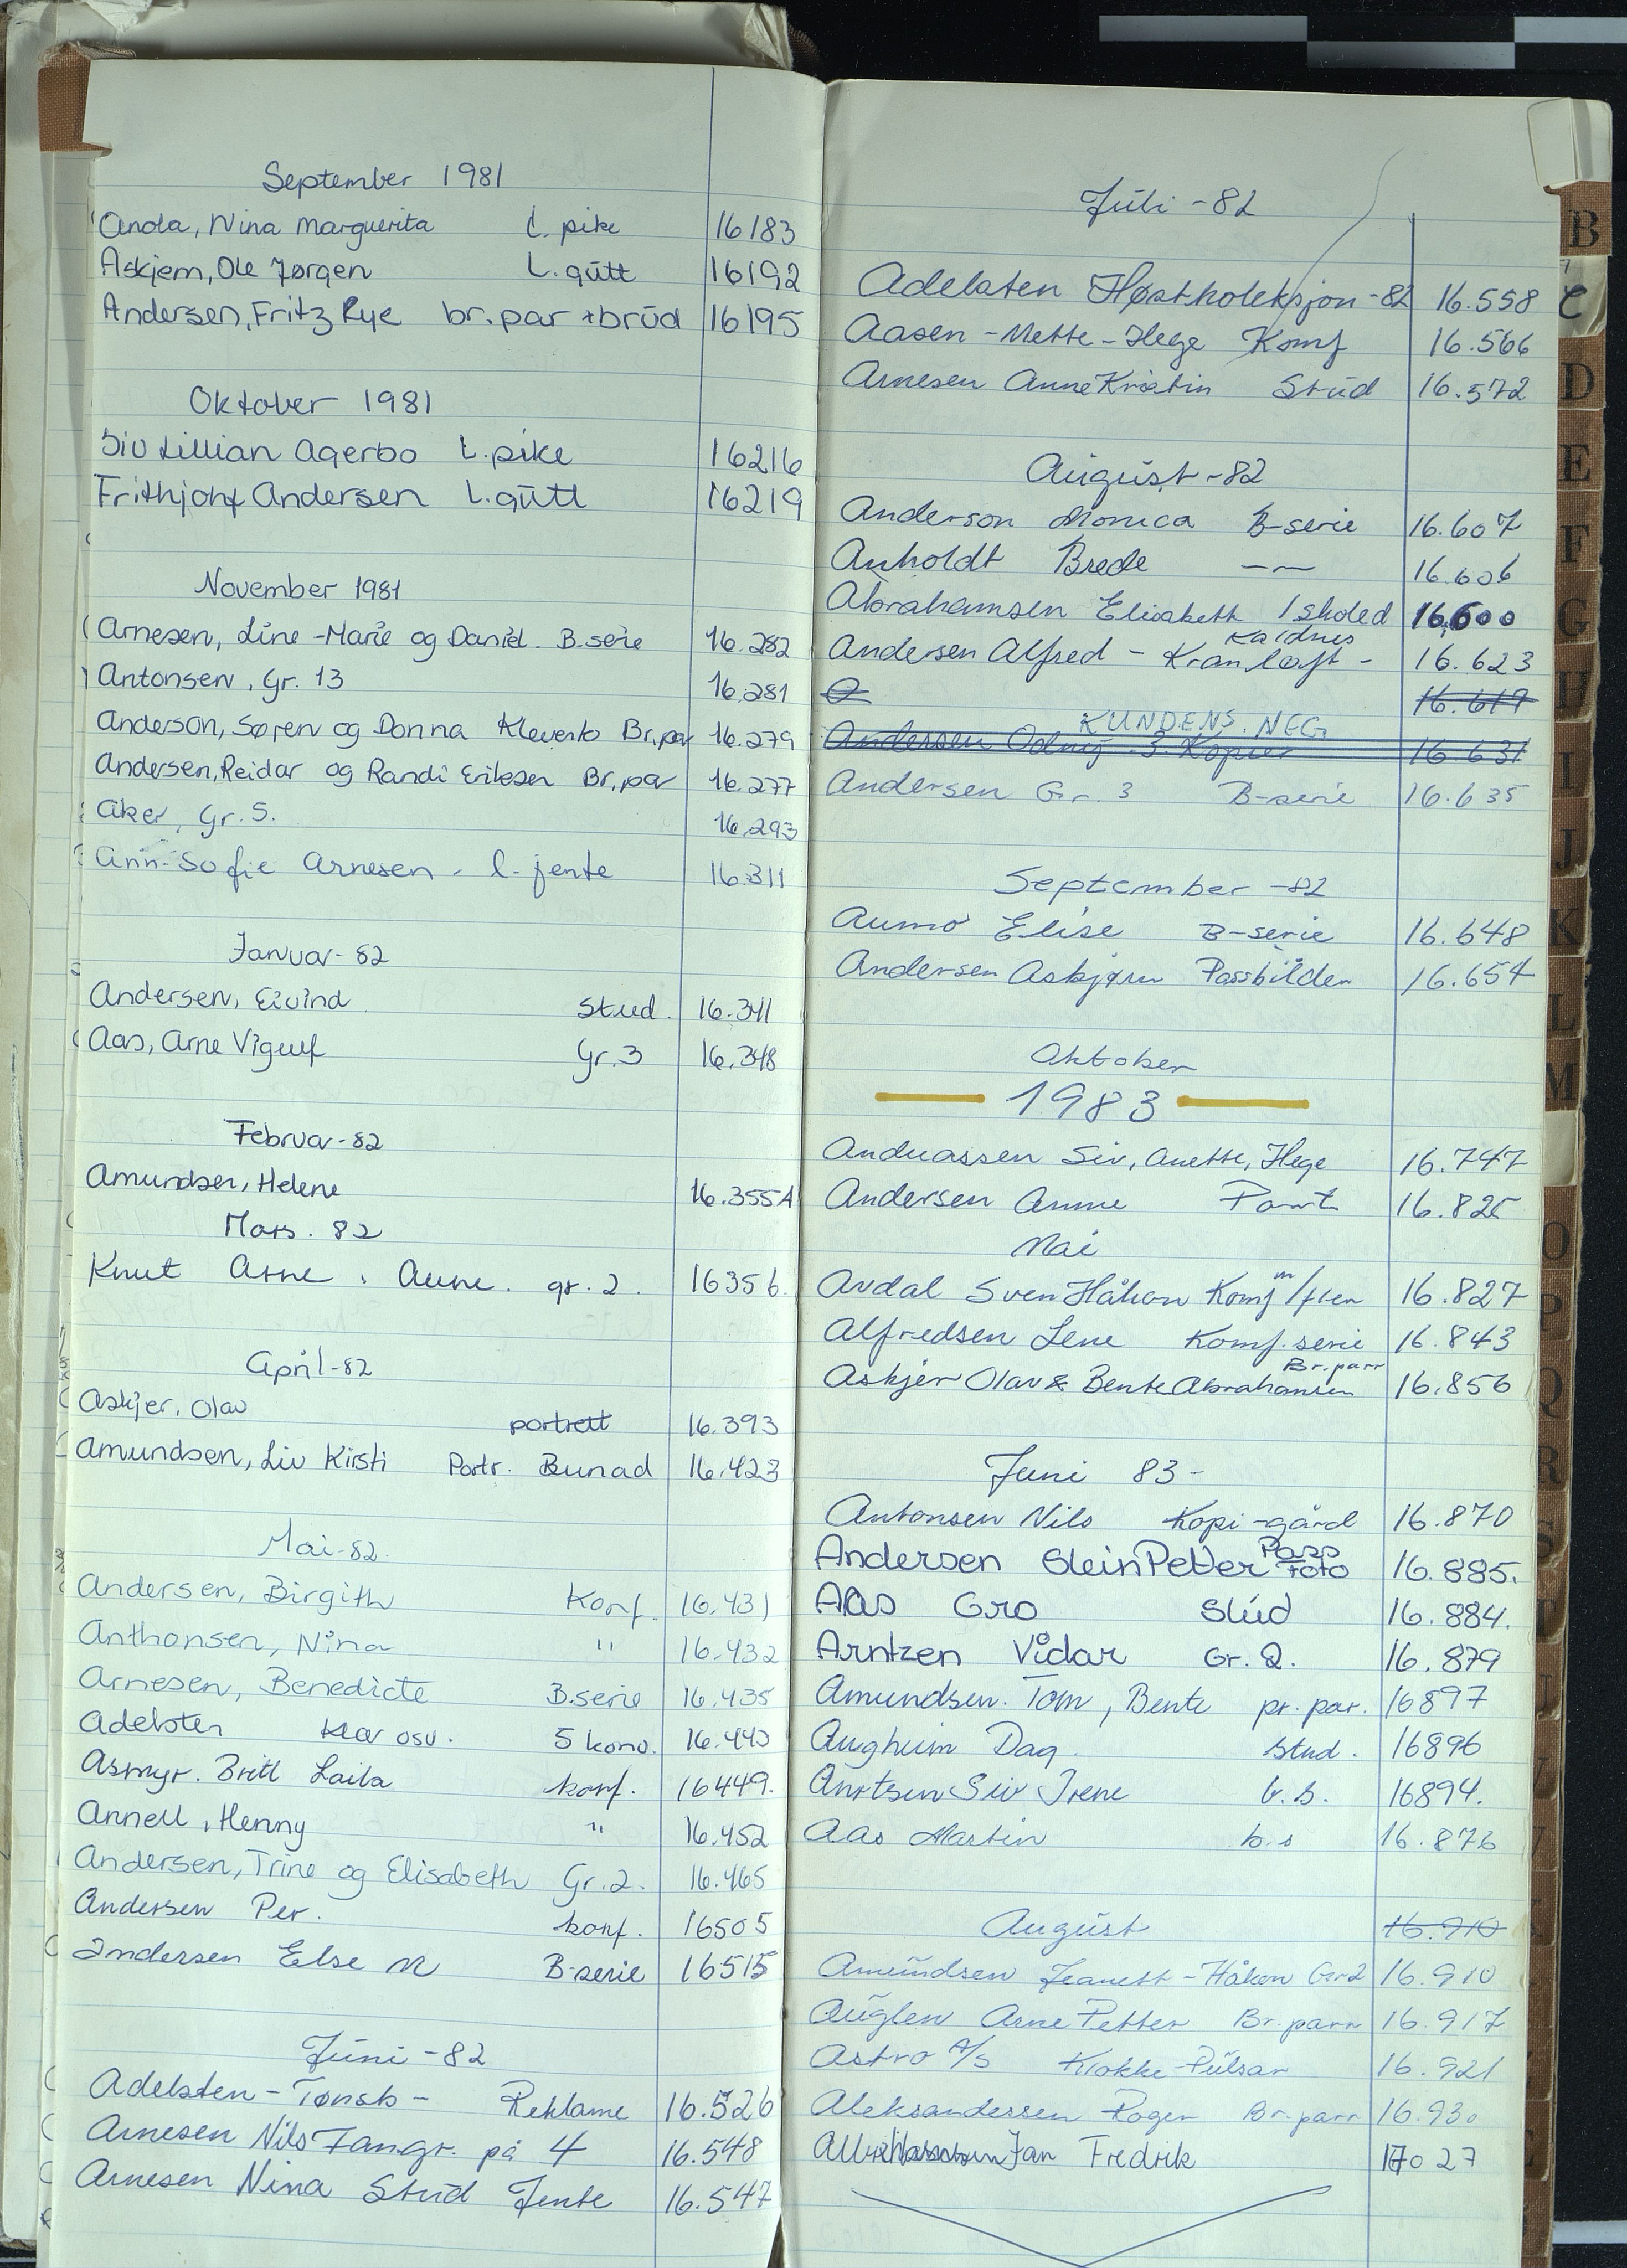 September 1981
Anda, Nina Marguerita L. pike 16183
Askjem, Ole Jørgen L. gutt 16192
Andersen, Fritz Rye br. par + brud 16195
Oktober 1981
Siv Lillian Agerbo L. pike 16216
Frithjohf Andersen L. gutt 16219
November 1981
Arnesen, Line-Marie og Daniel. B.serie 16.282
Antonsen, Gr. 13 16.281
Anderson, Søren og Donna Klevenbo Br.par 16.279
Andersen, Reidar og Randi Eriksen Br.par 16.277
Aker, Gr. 5. 16.293
Ann-Sofie Arnesen - l. jente 16.311
Januar-82
Andersen, Eivind Stud. 16.341
Aas, Arne Viguuf Gr.3 16.348
Februar-82
Amundsen, Helene 16.355A
Mars. 82
Knut Arne, Aune. gr. 2. 16356.
April-82
Askjer, Olav portrett 16.393
Amundsen, Liv Kirsti Portr. Bunad 16.423
Mai-82.
Andersen, Birgith Konf. 16.431
Anthonsen, Nina " 16.432
Arnesen, Benedicte B.serie 16.435
Adelsten Klær osv. 5 konv. 16.440
Asmyr. Britt Laila konf. 16449.
Annell, Henny " 16.452
Andersen, Trine og Elisabeth Gr.2. 16.465
Andersen Per. konf. 16505
Andersen Else M B-serie 16515
Juni-82
Adelsten-Tønsb- Reklame 16.526
Arnesen Nils Fam.gr. på 4 16.548
Arnesen Nina Stud Jente 16.547
Juli-82
Adelsten Høstkoleksjon-82 16.558
Aasen-Mette-Hege Komf 16.566
Arnesen Anne Kristin Stud 16.572
August-82
Anderson Monica B-serie 16.607
Anholdt Brede -~ 16.606
Abrahamsen Elisabeth 1 skoled 16,600
Kaldnes
Andersen Alfred - Kranløft - 16.623
A 16.617
KUNDENS. NEG
Anderssen Odny 3. Kopier 16.631
Andersen Gr. 3 B-serie 16.635
September-82
Aumo Elise B-serie 16.648
Andersen Asbjørn Passbilder 16.654
Oktober
1983
Andreassen Siv, Anette, Hege 16.747
Andersen Anne Port 16.825
Mai
Avdal Sven Håkon Komf m/fler 16.827
Alfredsen Lene Komf. serie 16.843
Br.parr
Askjer Olav & Bente Abrahamsen 16.856
Juni 83-
Antonsen Nils Kopi-gård 16.870
Andersen Stein Petter Pass Foto 16.885.
Aas Gro Stud 16.884.
Arntzen Vidar Gr. 2. 16.879
Amundsen. Tom, Bente pr. par. 16897
Augheim Dag. stud. 16896
Anrtsen Siv Irene b.s. 16894.
Aas Martin b.s 16.876
August 16.910
Amundsen Jeanett-Håkon Gr2 16.910
Auglen Arne Petter Br.parr 16.917
Astro A/S Klokke-Pulsar 16.921
Aleksanderssen Roger Br.parr 16.930
Jan Fredrik 17027
B
C
D
E
F
G
H
I
J
K
L
M
O
P
Q
R
S